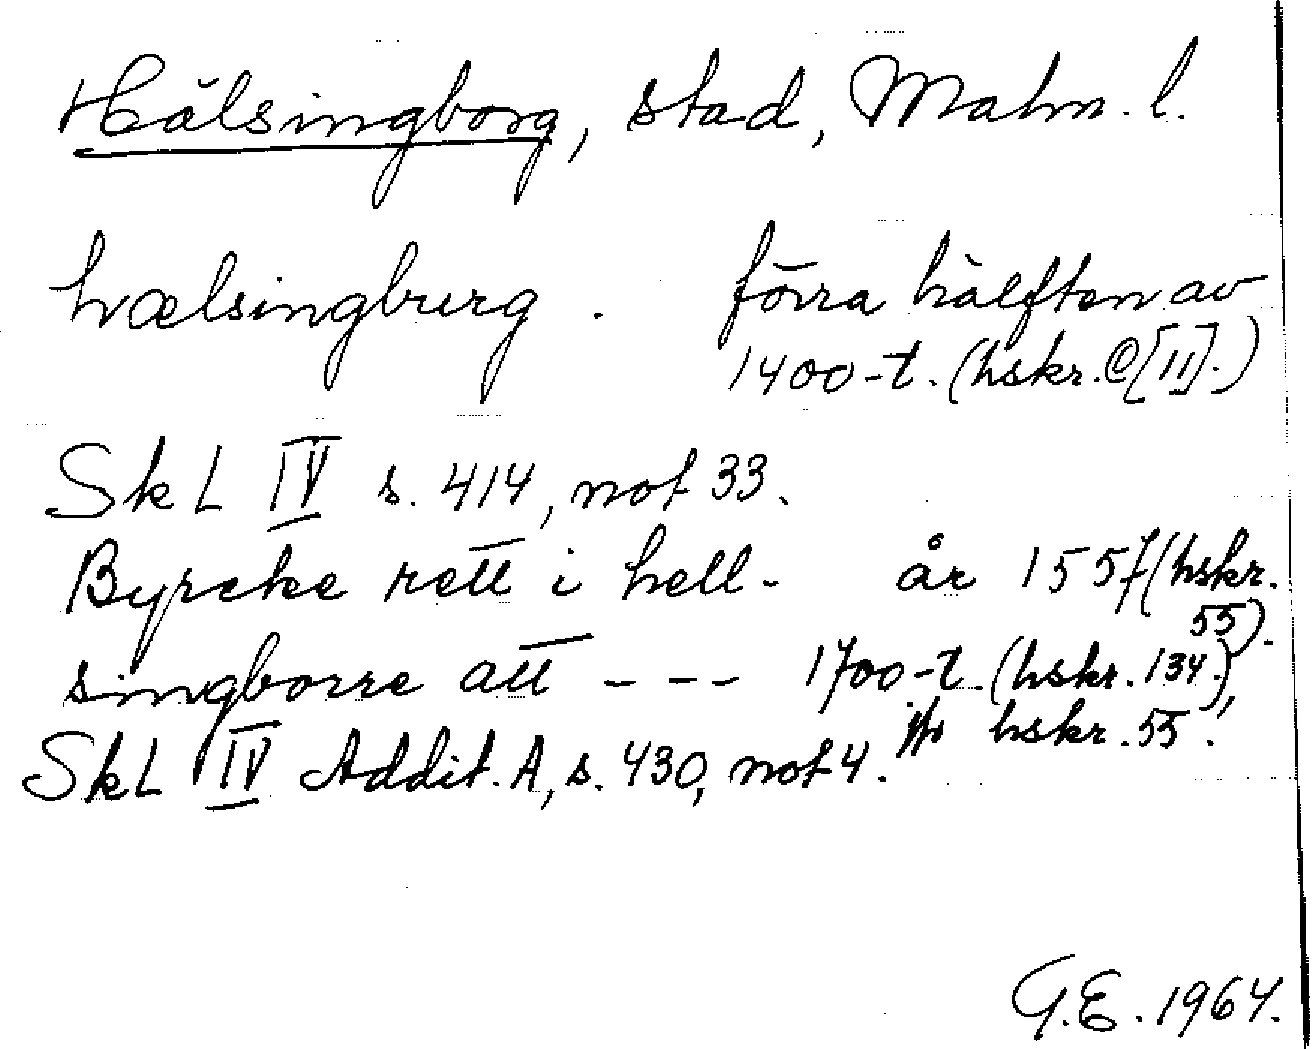 Hälsingborg, stad, Malm. l.
hælsingburg. förra hälften av
1400-t. (hskr. C [II].)
Sk L IV s. 414, not 33.
Byrcke rett i hell- år 1557 (hskr.
55).
singborre att --- 1700-t. (hskr. 134),
hskr. 55.
Sk L IV Addit. A, s. 430, not 4.
G.E. 1964.